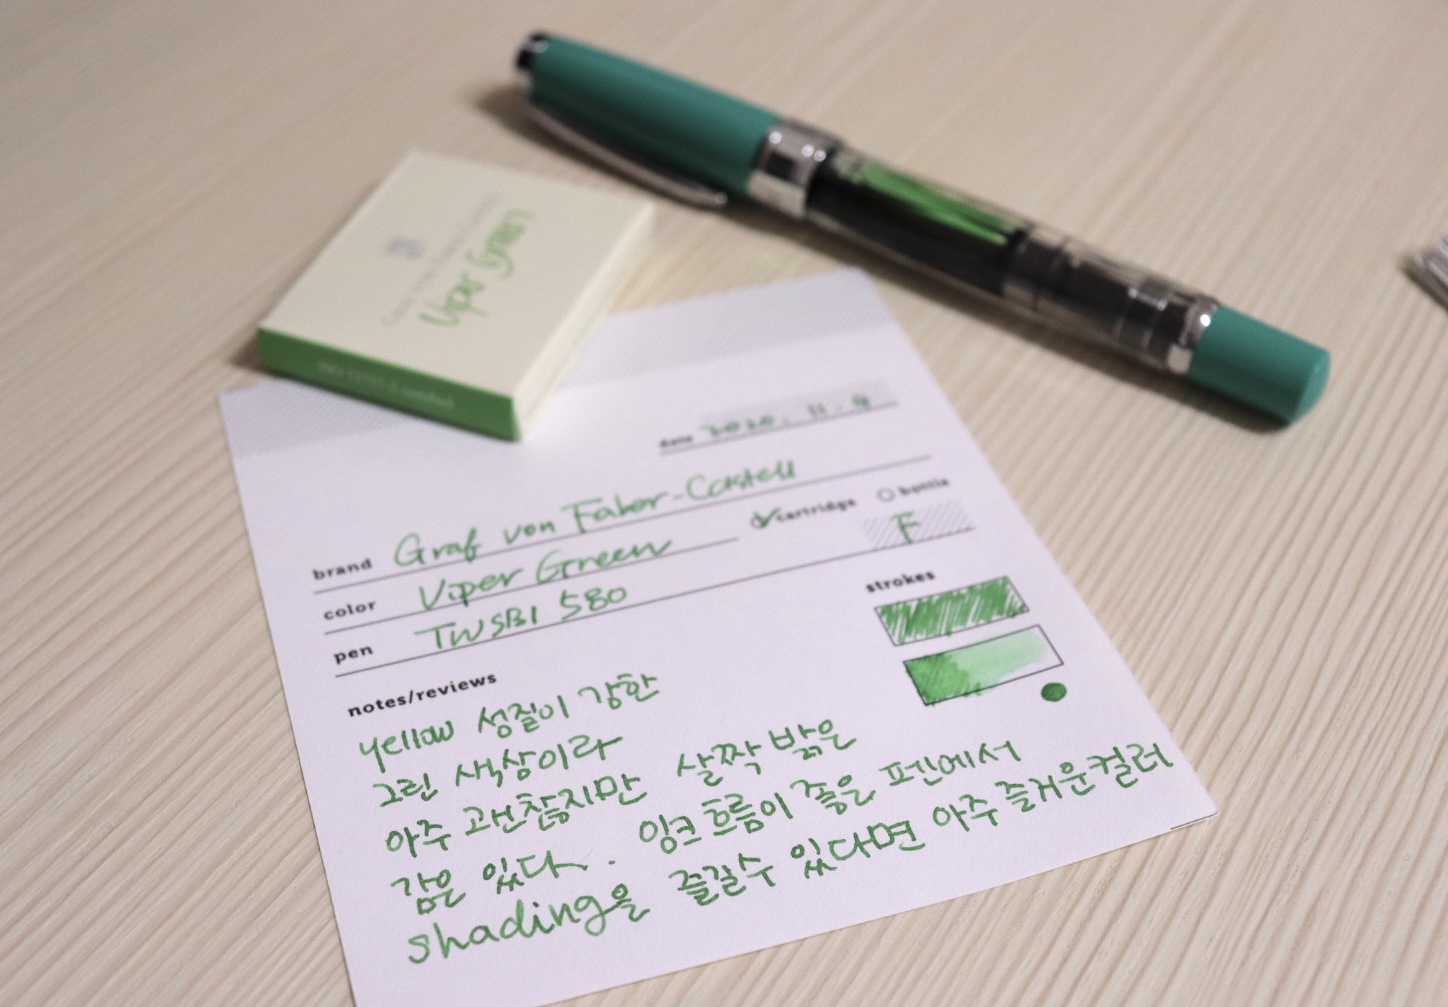 Viper Green
date 2020. 11. 4
brand Graf von Faber-Castell
color Viper Green cartridge bottle
pen TWSBI 580 F
notes/reviews strokes
yellow 성질이 강한
그린 색상이라
아주 괜찮지만 살짝 밝은
감은 있다. 잉크 흐름이 좋은 펜에서
shading을 즐길수 있다면 아주 즐거운컬러